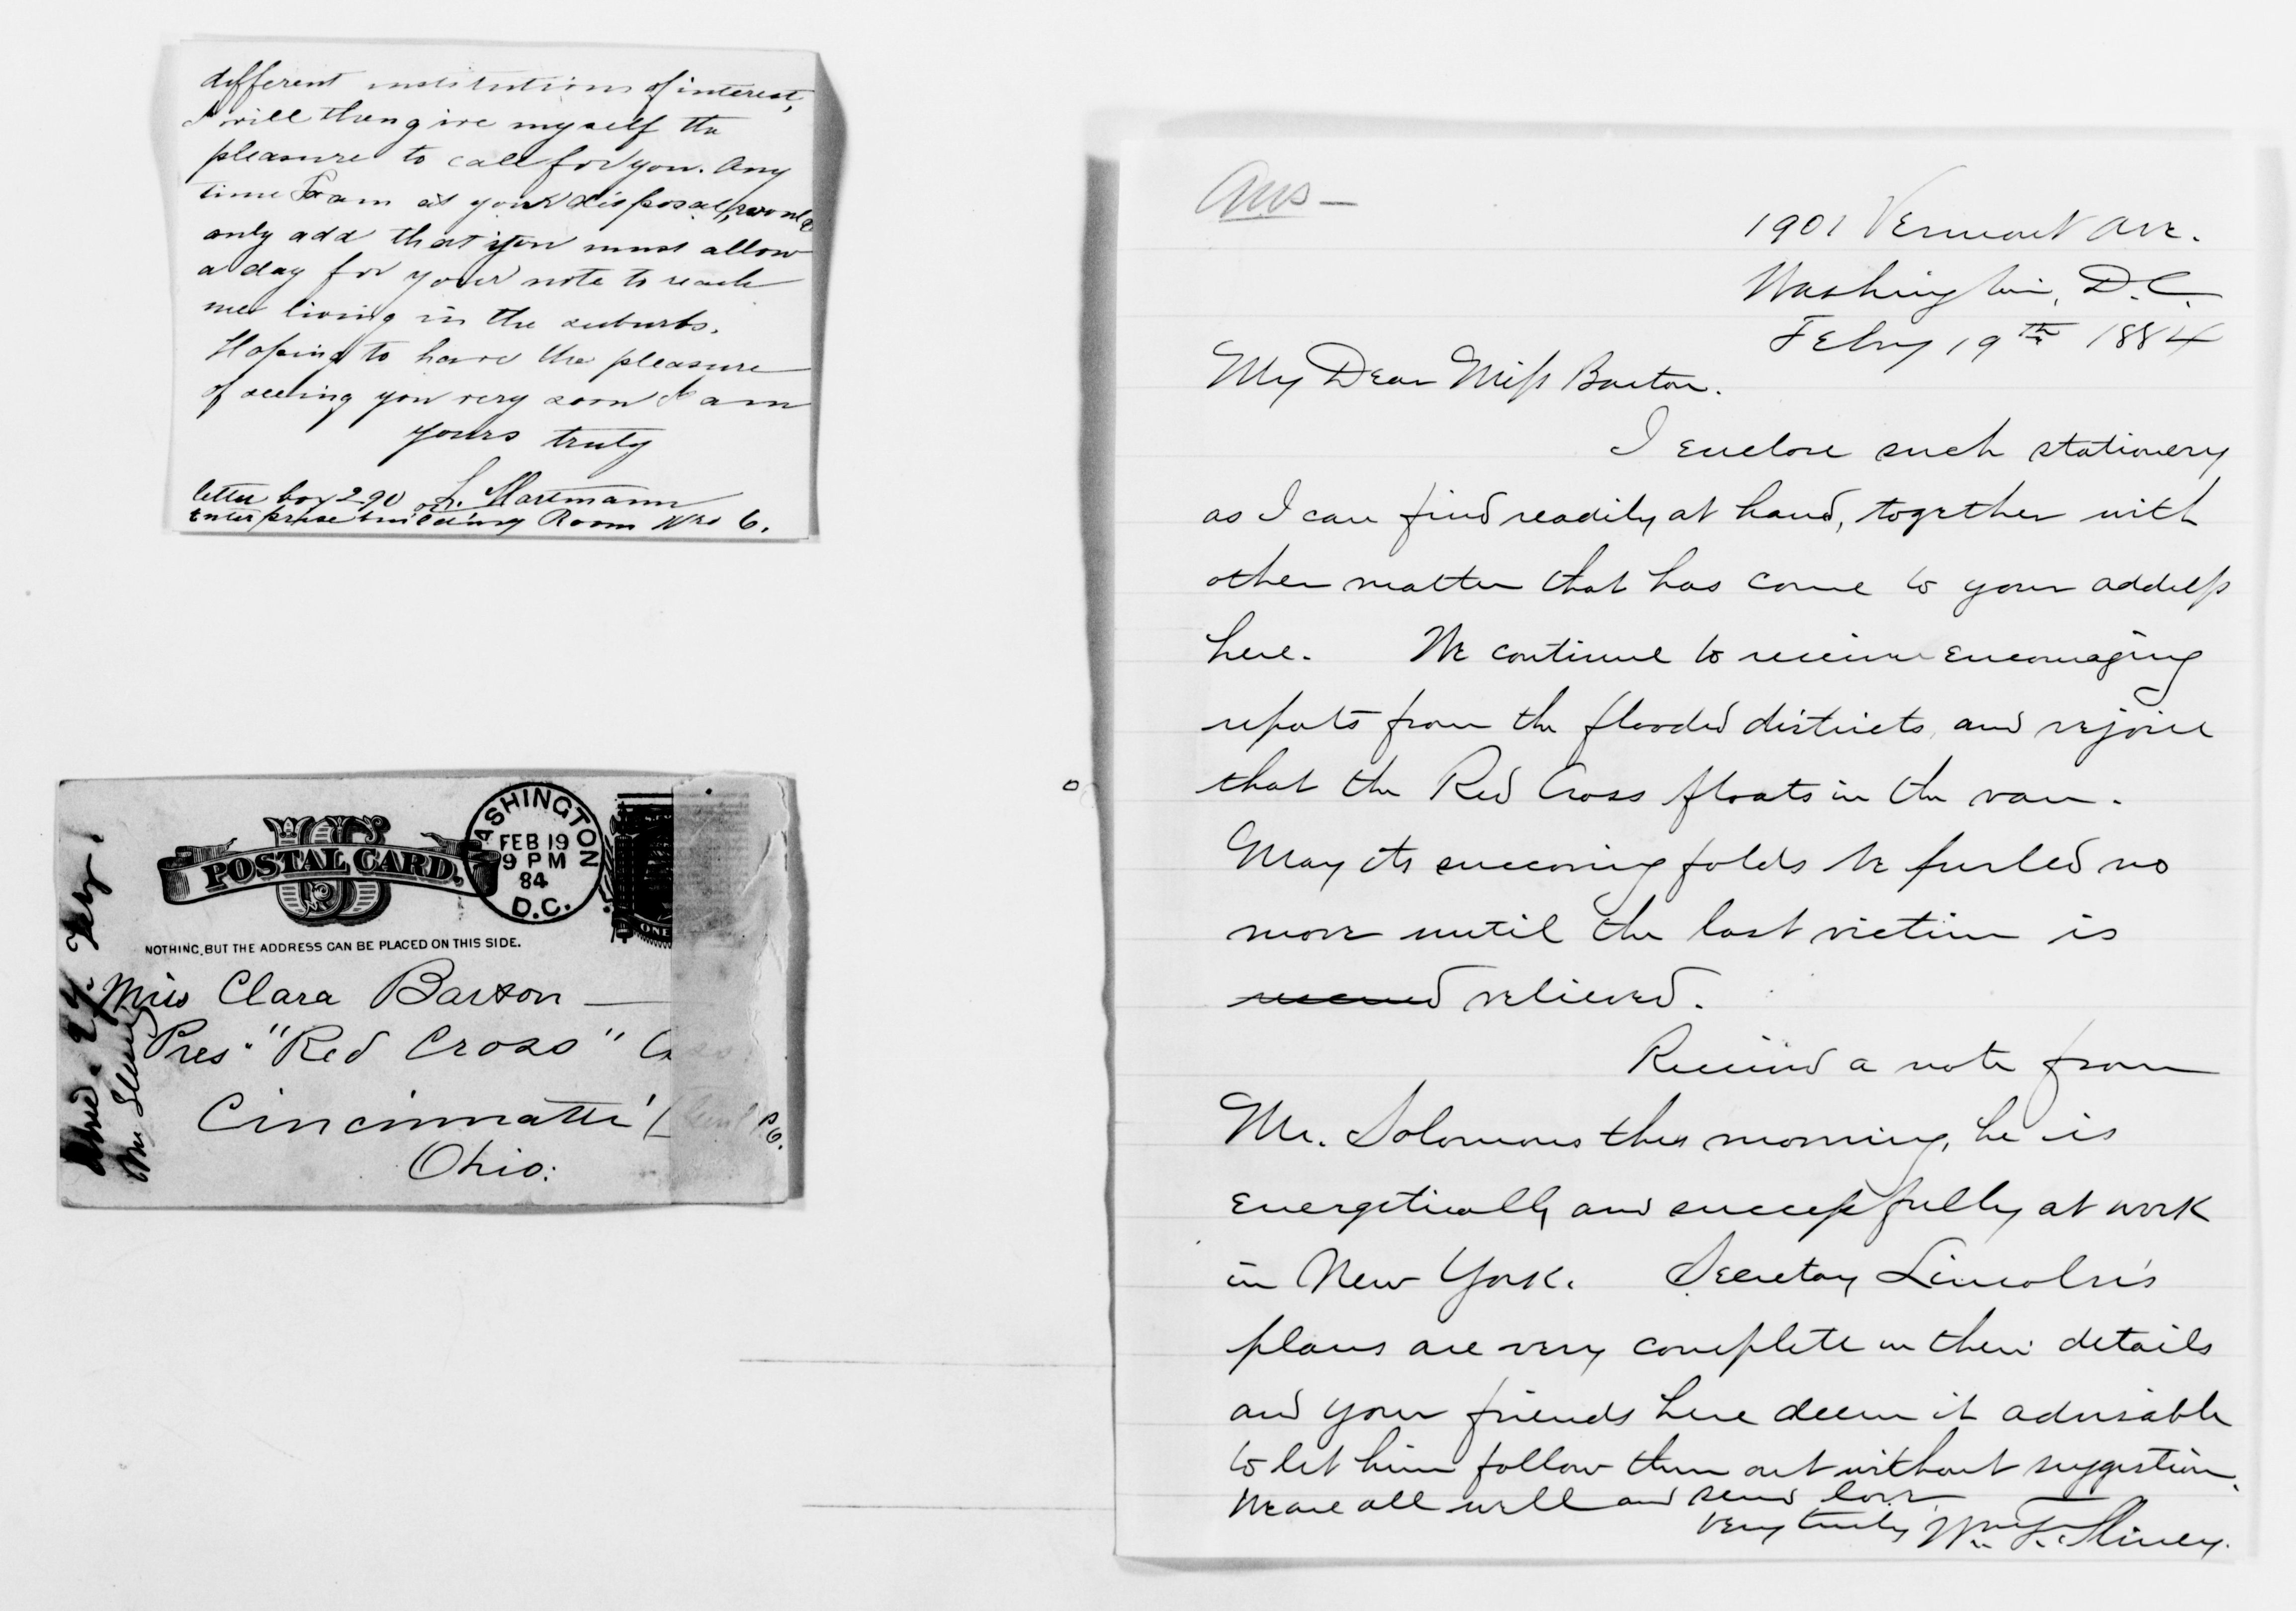 different institutions of interest,
I will then give myself the
pleasure to call for you. Any
time I am at your disposal, would
only add that you must allow
a day for your note to reach
me living in the suburbs.
Hoping to have the pleasure
of seeing you very soon I am
yours truly
L. Hartmann
letter box 290
Enterprise building Room No 6.
POSTAL CARD.
WASHINGTON
FEB 19
9 PM
84
D.C.
ONE
NOTHING BUT THE ADDRESS CAN BE PLACED ON THIS SIDE.
Miss Clara Barton
Pres. "Red Cross" Ass
Cincinnatti
P.O.
Ohio.
Ans —
1901 Vermont Ave.
Washington, D.C.
Feby 19th 1884
My Dear Miss Barton.
I enclose such stationery
as I can find readily at hand, together with
other matter that has come to your address
here. We continue to receive encouraging
reports from the flooded districts, and rejoice
that the Red Cross floats in the van.
May its succoring folds be furled no
more until the last victim is
relieved.
Received a note from
Mr. Solomons this morning, he is
energetically and successfully at work
in New York. Secretary Lincoln's
plans are very complete in their details
and your friends here deem it advisable
to let him follow them out without suggestion.
We are all well and send love
Very truly Wm. F. Sliney.